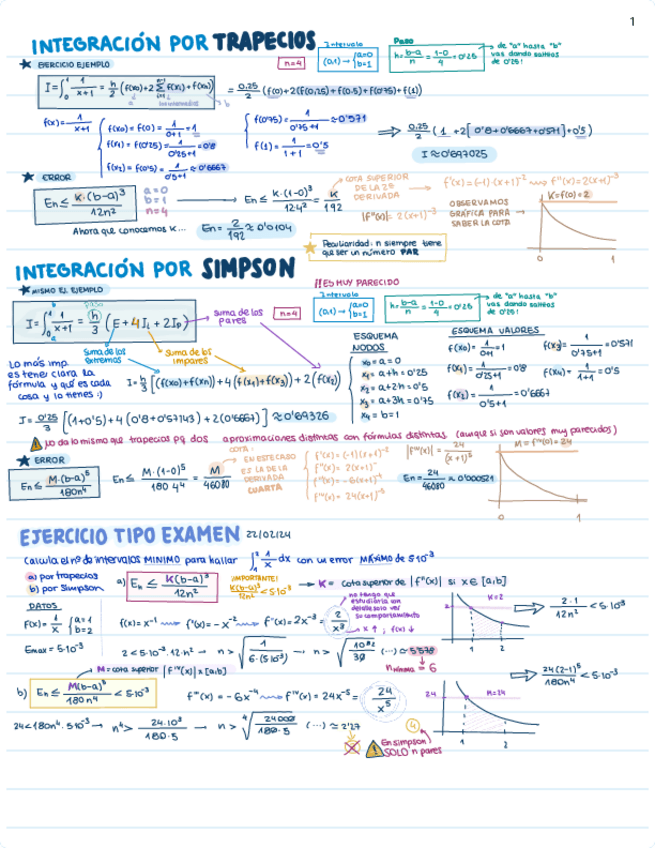 1
INTEGRACIÓN POR TRAPECIOS
EJERCICIO EJEMPLO
n=4
Intervalo
(0,1) → {a=0 b=1
Paso
h = (b-a)/n = (1-0)/4 = 0'25
→ de "a" hasta "b" vas dando saltitos de 0'25!
I = ∫₀¹ 1/(x+1) = h/2 (f(x0)+2 Σ f(xi) + f(xn))
= 0,25/2 (f(0)+2(f(0,25)+f(0.5)+f(0'75)+f(1))
f(x) = 1/(x+1)
f(x0) = f(0) = 1/(0+1) = 1
f(x1) = f(0'25) = 1/(0'25+1) = 0'8
f(x2) = f(0'5) = 1/(0'5+1) ≈ 0'6667
f(0'75) = 1/(0'75+1) ≈ 0'571
f(1) = 1/(1+1) = 0'5
⇒ 0.25/2 (1 +2[0'8+0'6667+0'571]+0'5)
I ≈ 0'697025
ERROR
En ≤ K·(b-a)³/12n²
a=0
b=1
n=4
→ En ≤ K·(1-0)³/12·4² = K/192
COTA SUPERIOR DE LA 2ª DERIVADA
f'(x) = (-1)·(x+1)⁻² → f''(x) = 2(x+1)⁻³
|f''(x)| = 2(x+1)⁻³
OBSERVAMOS GRÁFICA PARA SABER LA COTA
K=f(0)=2
0 1
Ahora que conocemos K... En = 2/192 ≈ 0'0104
Peculiaridad: n siempre tiene que ser un número PAR
INTEGRACIÓN POR SIMPSON
MISMO EJ. EJEMPLO
!!ES MUY PARECIDO
n=4
Intervalo
(0,1) → {a=0 b=1
h = (b-a)/n = (1-0)/4 = 0'25
→ de "a" hasta "b" vas dando saltitos de 0'25!
paso
I = ∫₀¹ 1/(x+1) = h/3 (E + 4Ii + 2Ip)
suma de los pares
suma de los extremos
suma de los impares
Lo más imp. es tener clara la fórmula y qué es cada cosa y lo tienes :)
I = h/3 [(f(x0)+f(xn)) + 4(f(x1)+f(x3)) + 2(f(x2))]
ESQUEMA NODOS
x0 = a = 0
x1 = a+h = 0'25
x2 = a+2h = 0'5
x3 = a+3h = 0.75
x4 = b = 1
ESQUEMA VALORES
f(x0) = 1/(0+1) = 1
f(x1) = 1/(0'25+1) = 0'8
f(x2) = 1/(0'5+1) = 0'6667
f(x3) = 1/(0'75+1) = 0'571
f(x4) = 1/(1+1) = 0'5
I = 0'25/3 [(1+0'5)+4(0'8+0'57143)+2(0'6667)] ≈ 0'69326
no da lo mismo que trapecios pq dos aproximaciones distintas con fórmulas distintas (aunque si son valores muy parecidos)
ERROR
En ≤ M·(b-a)⁵/180n⁴
En ≤ M·(1-0)⁵/180·4⁴ = M/46080
COTA: EN ESTE CASO ES LA DE LA DERIVADA CUARTA
f'(x) = (-1)(x+1)⁻²
f''(x) = 2(x+1)⁻³
f'''(x) = -6(x+1)⁻⁴
f''''(x) = 24(x+1)⁻⁵
|f''''(x)| = 24/(x+1)⁵
En = 24/46080 ≈ 0'000521
M = f''''(0) = 24
0 1
EJERCICIO TIPO EXAMEN 22/02/24
Calcula el nº de intervalos MINIMO para hallar ∫₁² 1/x dx con un error MÁXIMO de 5·10⁻³
a) por trapecios
b) por Simpson
a) En ≤ K(b-a)³/12n²
¡IMPORTANTE! K(b-a)³/12n² < 5·10⁻³
→ K = cota superior de |f''(x)| si x ∈ [a,b]
DATOS
f(x) = 1/x {a=1 b=2
Emax = 5·10⁻³
f(x) = x⁻¹ → f'(x) = -x⁻² → f''(x) = 2x⁻³ = 2/x³
x ↑, f(x) ↓
2 K=2
1 2
⇒ 2·1/12n² < 5·10⁻³
2 < 5·10⁻³·12·n² → n > √(1/6·(5·10⁻³)) → n > √(10³/30) (...) ≈ 5'578
nmínima = 6
M = cota superior |f''''(x)| x [a,b]
b) En ≤ M(b-a)⁵/180n⁴ < 5·10⁻³
f'''(x) = -6x⁻⁴ → f''''(x) = 24x⁻⁵ = 24/x⁵
24 M=24
1 2
⇒ 24(2-1)⁵/180n⁴ < 5·10⁻³
24 < 180n⁴·5·10⁻³ → n⁴ > 24·10³/180·5 → n > ⁴√(24000/180·5) (...) ≈ 2'27
4
En simpson SOLO n pares